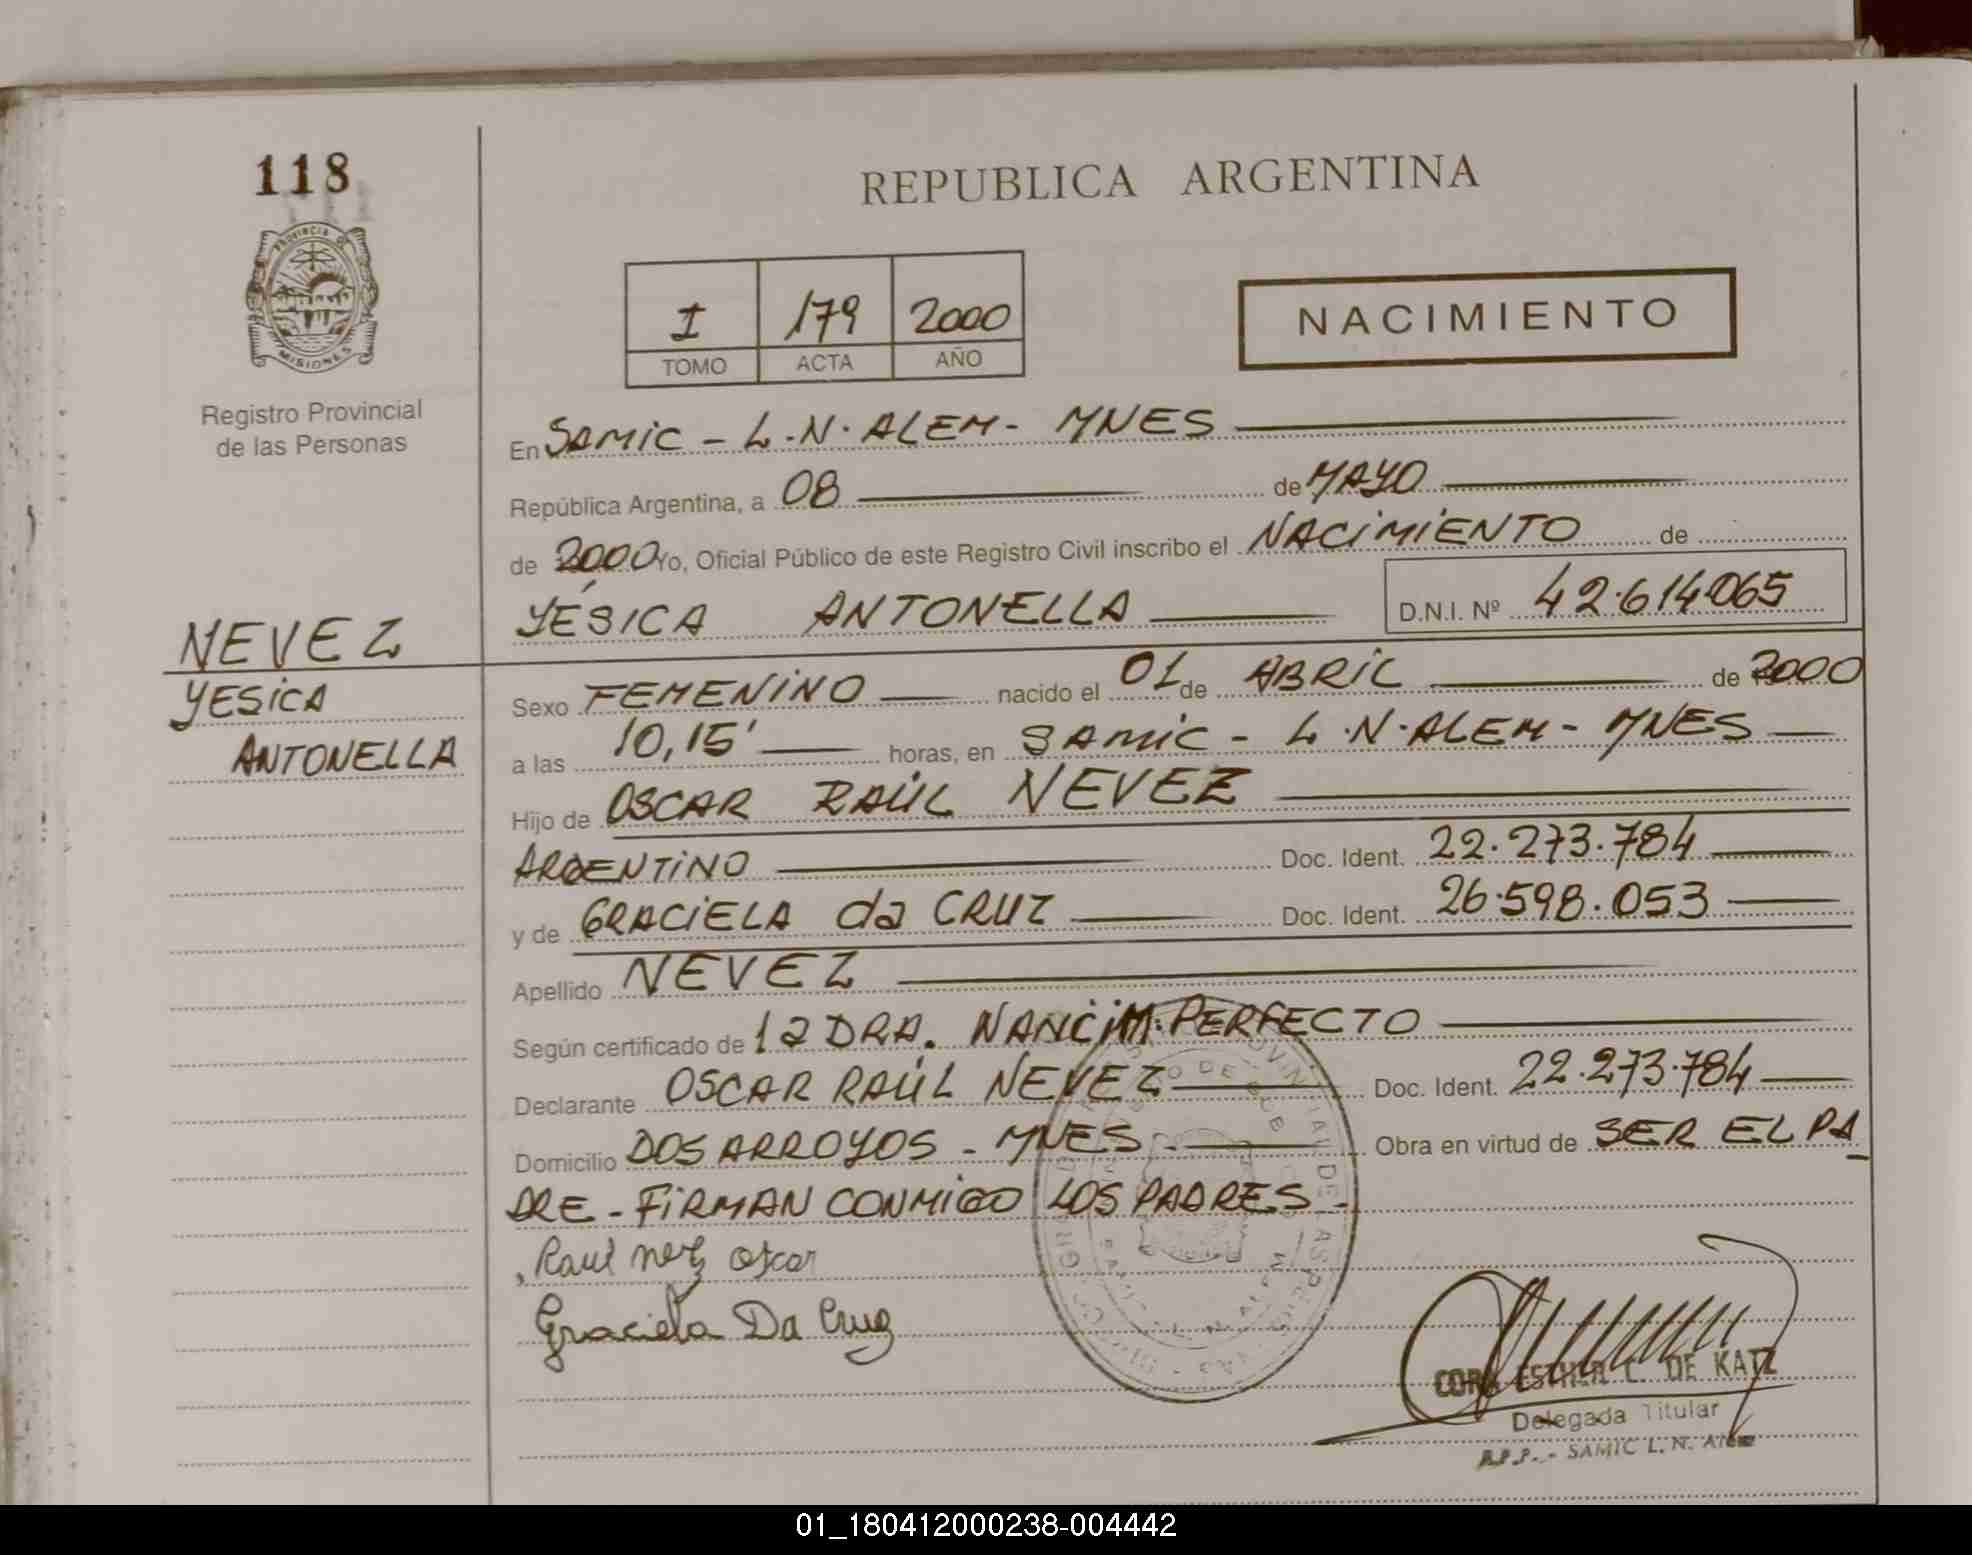 118
REPUBLICA ARGENTINA
PROVINCIA DE
MISIONES
Registro Provincial
de las Personas
I 179 2000
TOMO ACTA AÑO
NACIMIENTO
En SAMIC - L.N. ALEM - MNES
República Argentina, a 08 de MAYO
de 2000 Yo, Oficial Público de este Registro Civil inscribo el NACIMIENTO de
YÉSICA ANTONELLA D.N.I. Nº 42.614.065
NEVEZ
YESICA
ANTONELLA
Sexo FEMENINO nacido el 01 de ABRIL de 2000
a las 10,15' horas, en SAMIC - L.N. ALEM - MNES
Hijo de OSCAR RAÚL NEVEZ
ARGENTINO Doc. Ident. 22.273.784
y de GRACIELA da CRUZ Doc. Ident. 26.598.053
Apellido NEVEZ
Según certificado de la DRA. NANCI M. PERFECTO
Declarante OSCAR RAÚL NEVEZ Doc. Ident. 22.273.784
Domicilio DOS ARROYOS - MNES - Obra en virtud de SER EL PA
DRE - FIRMAN CONMIGO LOS PADRES -
Raul oscar
Graciela Da Cruz
ESTHER C. DE KATZ
Delegada Titular
R.P.P. - SAMIC L. N. Alem
01_180412000238-004442